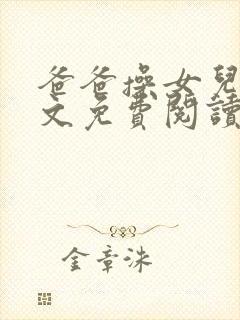 爸爸操女兒
文免費閱讀
金章洙